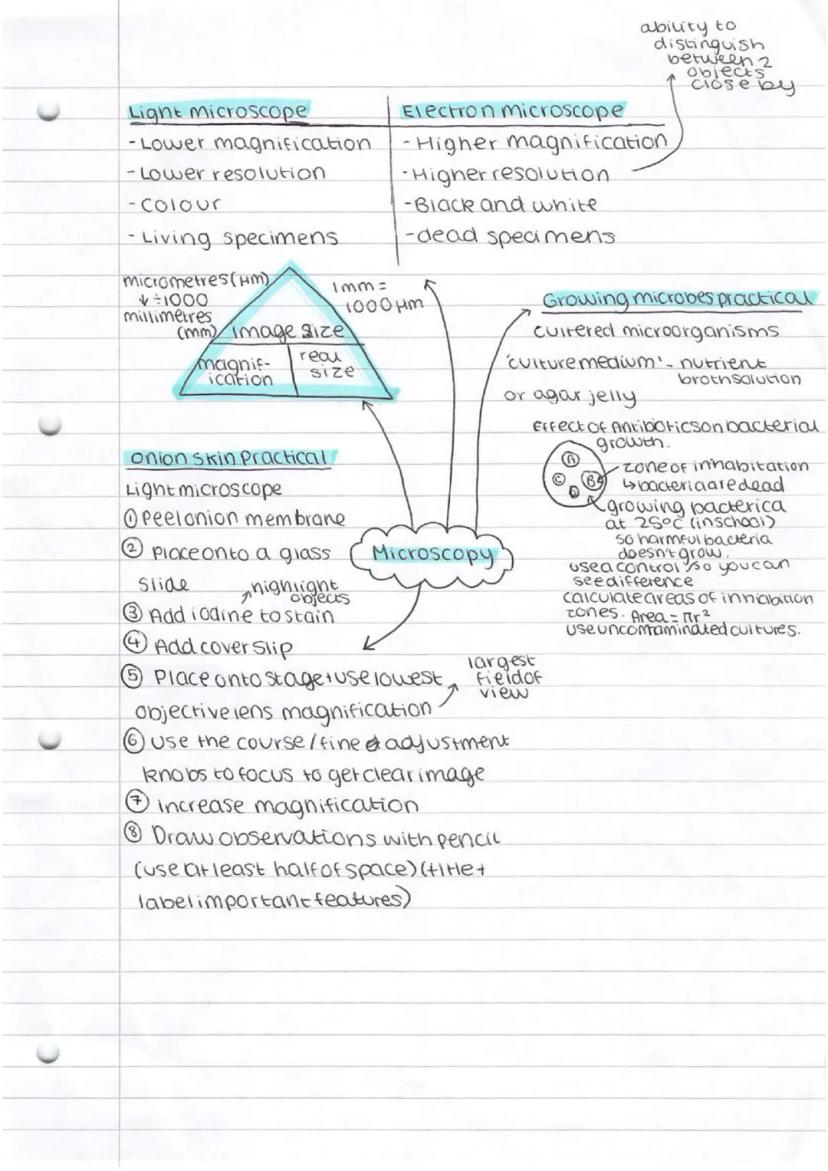 ability to
distinguish
between 2
objects
close by
Light microscope
- Lower magnification
- Lower resolution
- Colour
- Living specimens
Electron microscope
- Higher magnification
- Higher resolution
- Black and white
- dead specimens
micrometres (µm)
↓ ÷1000
millimetres
(mm)
1mm =
1000 µm
image size
magnif-
ication
real
size
Growing microbes practical
cultered microorganisms
'culture medium' - nutrient
broth solution
or agar jelly
Effect of Antibotics on bacterial
growth.
A
B
C
D
zone of inhabitation
↳ bacteria are dead
growing bacterica
at 25°C (in school)
so harmful bacteria
doesn't grow.
use a control so you can
see difference
calculate areas of inhibition
zones. Area = πr²
use uncontaminated cultures.
Microscopy
Onion skin practical
Light microscope
① Peel onion membrane
② Place onto a glass
slide
highlight
objects
③ Add iodine to stain
④ Add cover slip
⑤ Place onto stage + use lowest
objective lens magnification
largest
field of
view
⑥ Use the course / fine adjustment
knobs to focus to get clear image
⑦ increase magnification
⑧ Draw observations with pencil
(use at least half of space) (title +
label important features)